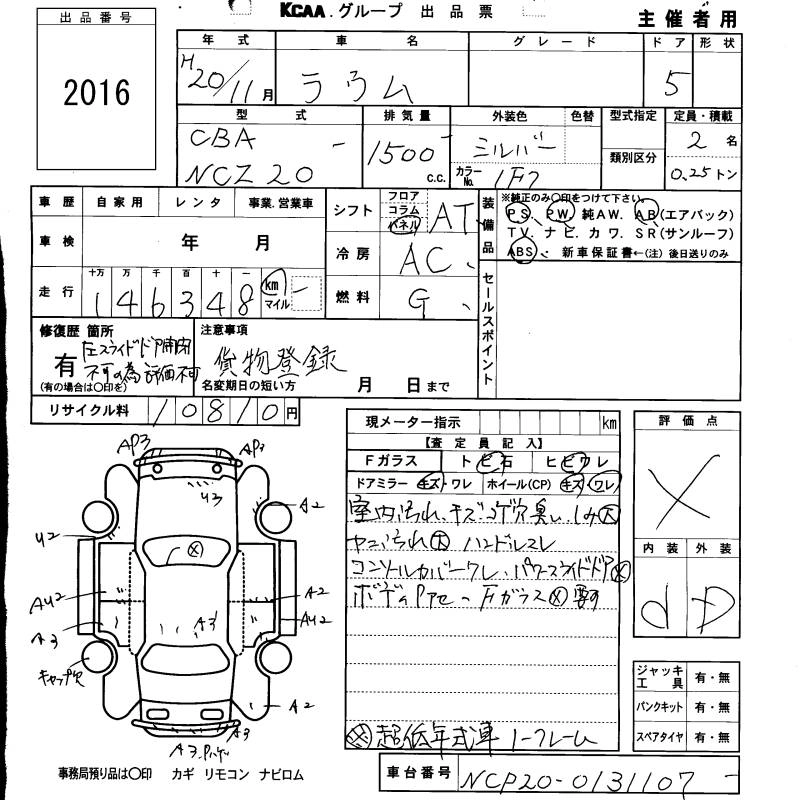 KCAA.グループ 出品票
主催者用
出品番号
2016
年式 車名 グレード ドア 形状
H20/11月 ラウム 5
型式 排気量 外装色 色替 型式指定 定員・積載
CBA - 1500 c.c. シルバー 類別区分 2名
NCZ20 カラーNo. 1F7 0.25トン
車歴 自家用 レンタ 事業.営業車
シフト フロア コラム パネル AT
装備品 ※純正のみ○印をつけて下さい。
PS、PW、純AW、AB(エアバック)
TV、ナビ、カワ、SR(サンルーフ)
ABS、新車保証書←(注)後日送りのみ
車検 年 月
冷房 AC
走行 十万 万 千 百 十 一
146348 km マイル
燃料 G
セールスポイント
修復歴 箇所
有 左スライドドア開閉不可の為評価不可
(有の場合は○印を)
注意事項
貨物登録
名変期日の短い方 月 日まで
リサイクル料 10810円
現メーター指示 km
【査定員記入】
Fガラス トビ石 ヒビワレ
ドアミラー キズ・ワレ ホイール(CP) キズ・ワレ
室内汚れ、キズコゲ穴臭い、しみ大
ヤニ汚れ大 ハンドルスレ
コンソールカバーワレ、パワースライドドア×
Fガラス×要す
※超低年式車 ノークレーム
評価点
X
内装 外装
d D
ジャッキ工具 有・無
パンクキット 有・無
スペアタイヤ 有・無
AP3 AP2
U3
A2
U2
AU2
A3
A3
A2
AU2
キャップ欠
A2
A3
事務局預り品は○印 カギ リモコン ナビロム
車台番号 NCP20-0131107